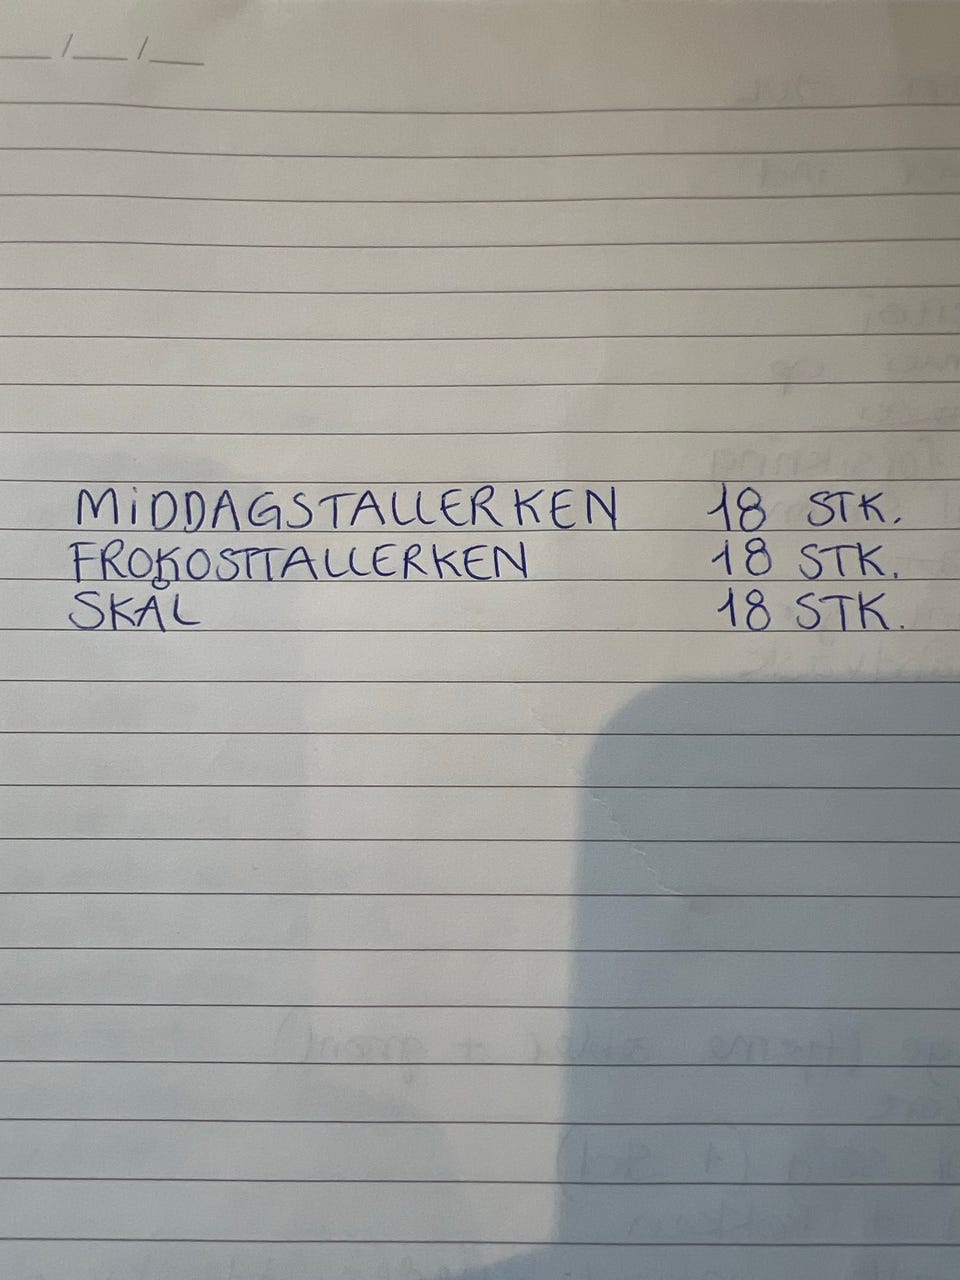 MIDDAGSTALLERKEN 18 STK.
FROKOSTTALLERKEN 18 STK.
SKÅL 18 STK.